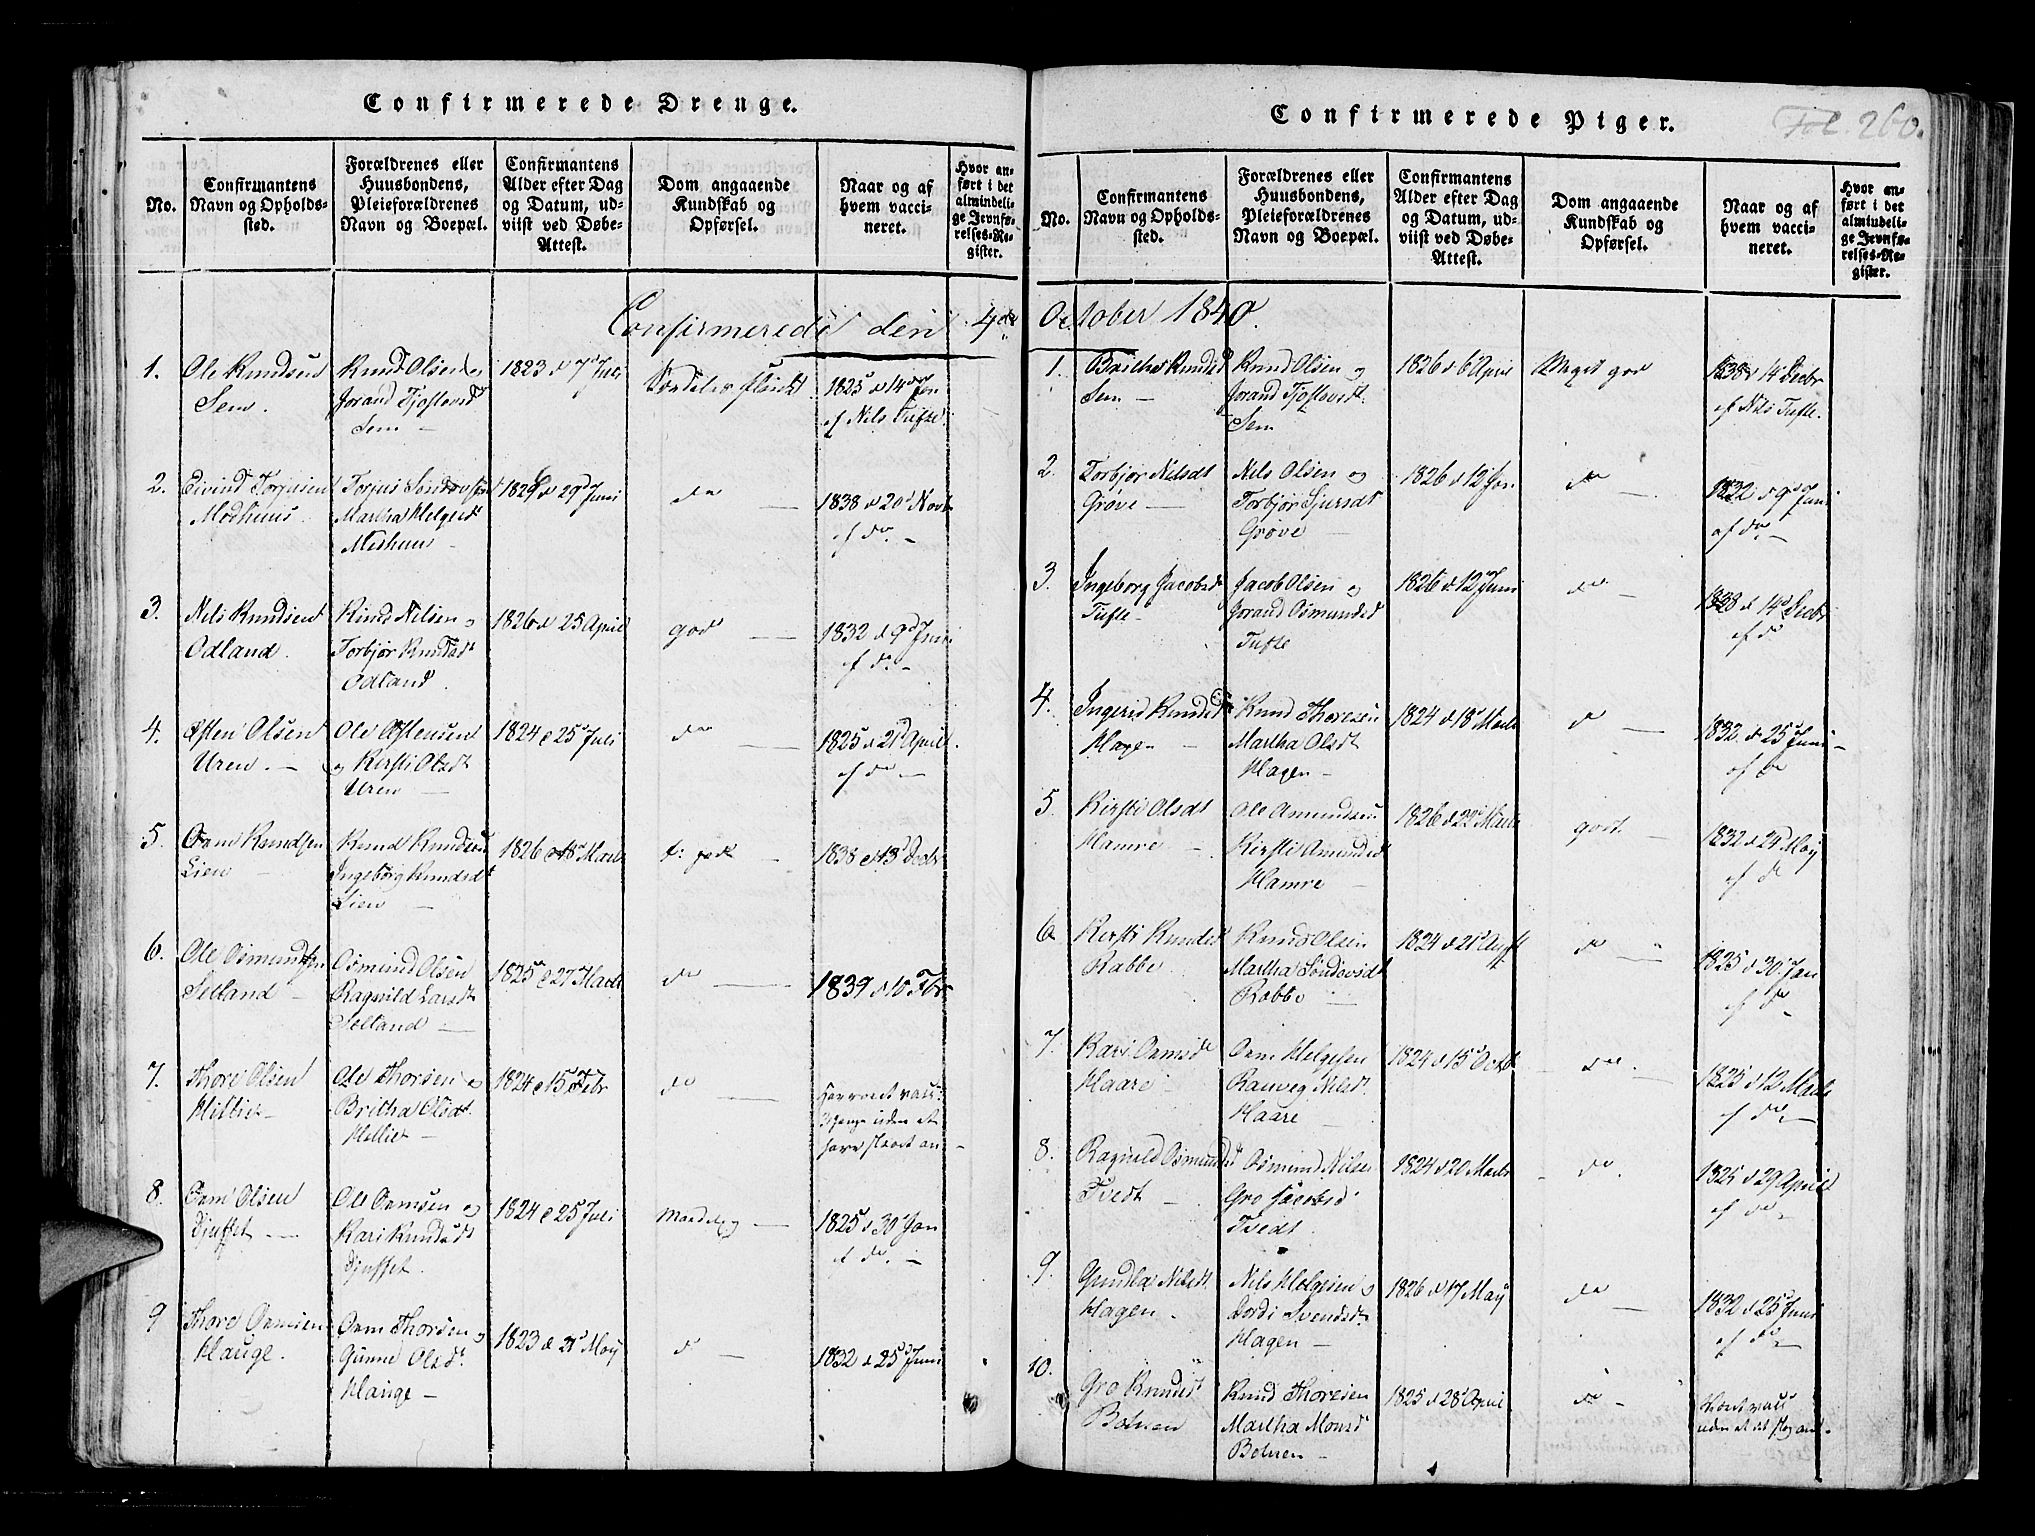 Confirmerede Drenge.
No.
Confirmantens
Navn og Opholds-
sted.
Forældrenes eller
Huusbondens,
Pleieforældrenes
Navn og Boepæl.
Confirmantens
Alder efter Dag
og Datum, ud-
viist ved Døbe-
Attest.
Dom angaaende
Kundskab og
Opførsel.
Naar og af
hvem vacci-
neret.
Hvor an-
ført i det
almindeli-
ge Jevnfø-
relses-Re-
gister.
Confirmerede den 4de
1.
Ole Knudsen
Sem.
Knud Olsen
Jorand Tjostovsd
Sem
1823 d 7
1825 d 14 Jan
af Nils Tufte
2.
Eivind Torjusen
Medhuus.
Torjus
Martha Helgesd
Medhuus
d 29 Juni
do
1838 d 20 Novb
af do
3.
Nels Knudsen
Odland.
Knud Nilsen og
Torbjør Knudsd
Odland.
1826 d 25 April
god
1832 d 9 Juni
af do
4.
Østen Olsen
Uren.
Ole Østensen
og Kirsti Olsdt
Uren
1824 d 25 Juli
do
1825 d 21 April
af do
5.
Orm Knudsen
Lien
Knud Knudsen
Ingeborg Knudsdt
Lien
1826 d 18 Marts
1838 d 13 Decbr
6.
Ole Osmundsen
Selland
Osmund Olsen
Ragnild Larsdt
Selland
1825 d 27 Marts
do
1839 d 10 Fbr
7.
Thore Olsen
Ole Thorsen og
Britha Olsdt
1824 d 15 Febr
do
uden at
have slaaet an
8.
Orm Olsen
Djuffet
Ole Ormsen og
Kari Knudsdt
Djuffet.
1824 d 25 Juli
1825 d 30 Jan
af do
9
Thore Ormsen
Hauge.
Orm Thorsen og
Gunne Olsdt
Hauge
1823 d 21 May
do
1832 d 25 Juni
Confirmerede Piger.
Fol. 260.
No.
Confirmantens
Navn og Opholds-
sted.
Forældrenes eller
Huusbondens,
Pleieforældrenes
Navn og Boepæl.
Confirmantens
Alder efter Dag
og Datum, ud-
viist ved Døbe-
Attest.
Dom angaaende
Kundskab og
Opførsel.
Naar og af
hvem vacci-
neret.
Hvor an-
ført i det
almindeli-
ge Jevnfø-
relses-Re-
gister.
October 1840.
1.
Britha Knudsd
Sem
Knud Olsen og
Jorand Tjostovsdt
Sem
1826 d 6 April
Meget god
1838 d 14 Decbr
af Nils Tufte.
2.
Torbjør Nilsdt
Grøve
Nels Olsen og
Torbjør Sjursdt
Grøve
1826 d 12 Jan
do
1832 d 9 Juni
af do
3.
Ingeborg Jacobsd
Tufte
Jacob Olsen og
Jorand Osmundsd
Tufte
1826 d 12 Juni
do
1838 d 14 Decbr
af do
4.
Ingerid Knudsd
Hagen
Knud Thoresen
Martha Olsdt
Hagen
1824 d 18 Marts
do
1832 d 25 Juni
af do
5
Kirsti Olsdt
Hamre
Ole Amundsen
Kirsti Amundsd
Hamre
1826 d 22 Marts
godt
1832 d 24 May
af do
6
Kirsti Knudsd
Rabbe
Knud Olsen
Martha Sondovsdt
Rabbe
1824 d 21 Augt
do
1825 d 30 Jan
af do
7.
Kari Ormsdt
Haare
Orm Helgesen
Ranveg Nilsdt
Haare
1824 d 15 Octb
do
1825 d 12 Marts
af do
8.
Ragnild Osmundsd
Tvedt
Osmund Nilsen
Gro Jacobsd
Tvedt.
1824 d 20 Marts
do.
1825 d 29 April
af do
9.
Gundla Nilsdt
Hagen.
Nils Helgesen og
Dordi Svendsdt
Hagen
1826 d 17 May
do
1832 d 25 Juni
af do
10.
Gro Knudsd
Bolven
Knud Thoresen
Martha Monsd
Bolven
1825 d 28 April
do